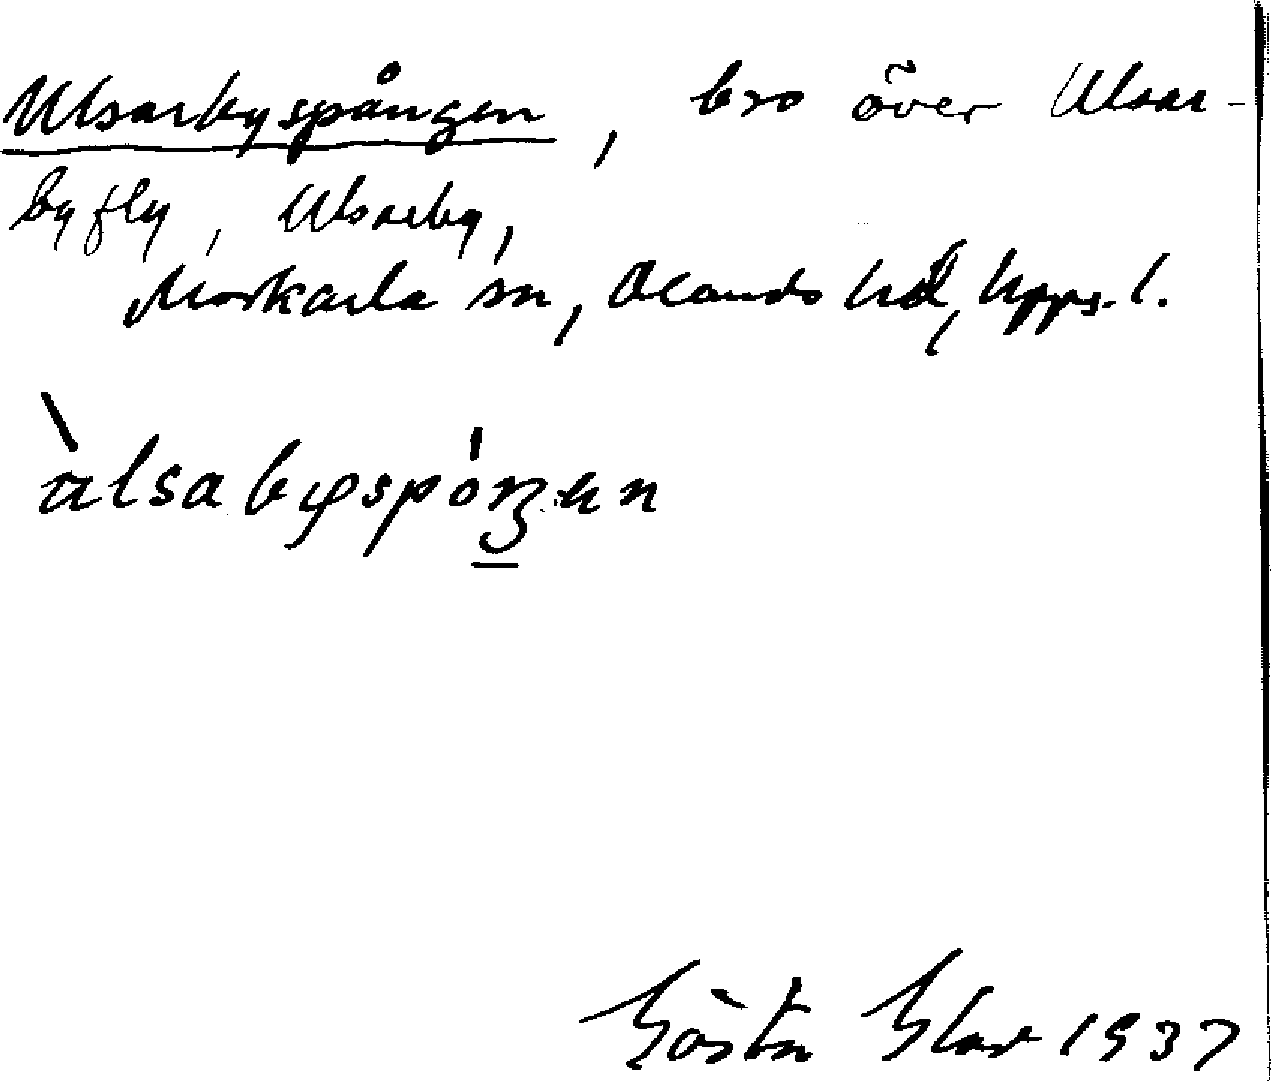 Ulsarbyspången, bro över Ulsar-
byfly, Ulsarby,
Morkarla sn, Olands hd, Upps. l.
àlsabyspóŋen
Gösta 1937